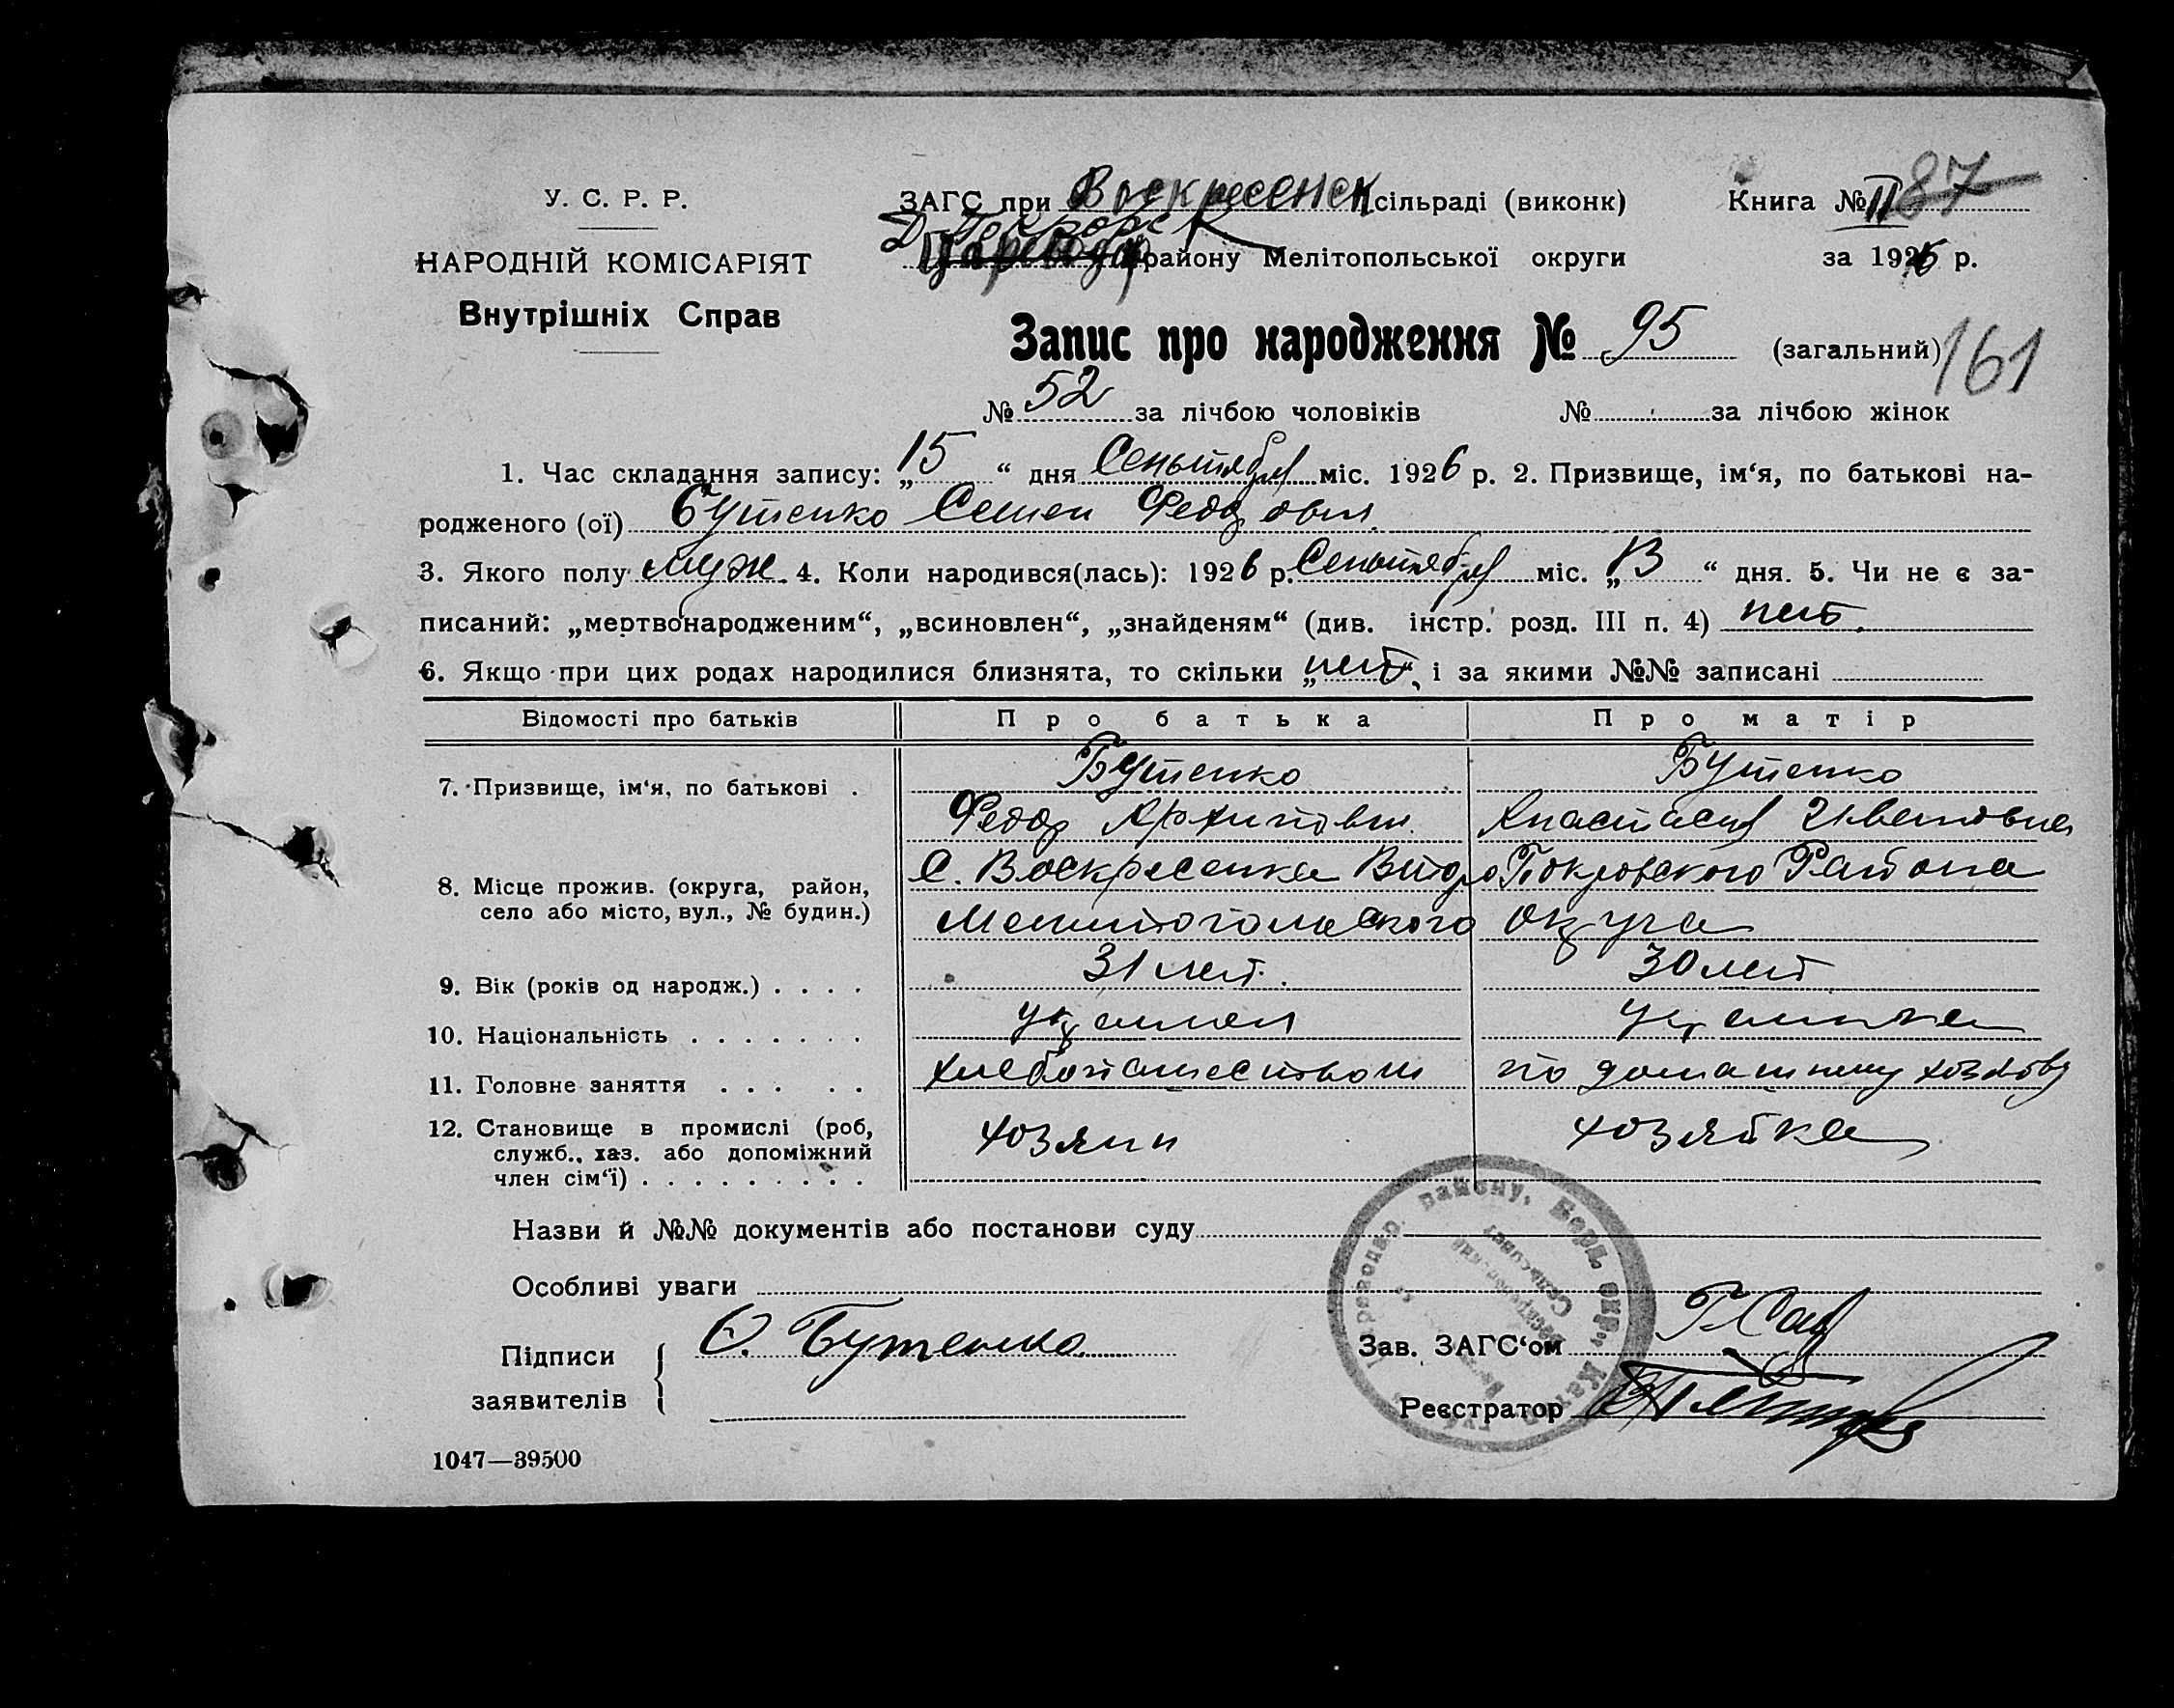 У. С. Р. Р.
НАРОДНІЙ КОМІСАРІЯТ
Внутрішніх Справ
ЗАГС при Воскресенск сільраді (виконк)
Книга № II 87
району Мелітопольської округи
за 1926 р.
Запис про народження № 95 (загальний) 161
№ 52 за лічбою чоловіків № за лічбою жінок
1. Час складання запису: „15“ дня Сентября міс. 1926 р. 2. Призвище, ім‘я, по батькові на-
родженого (ої) Бутенко Семен Федорович
3. Якого полу муж. 4. Коли народився(лась): 1926 р. Сентября міс. „13“ дня. 5. Чи не є за-
писаний: „мертвонародженим“, „всиновлен“, „знайденям“ (див. інстр. розд. III п. 4) нет.
6. Якщо при цих родах народилися близнята, то скільки „нет“, і за якими №№ записані
Відомості про батьків Про батька Про матір
7. Призвище, ім‘я, по батькові . Бутенко Бутенко
Федор Архипович Анастасия
8. Місце прожив. (округа, район, село або місто, вул., № будин.) С. Воскресенка Второ Покровского Района
Мелитопольского округа
9. Вік (років од народж.) . . . . 31 лет. 30 лет
10. Національність . . . . . . . украинец украинка
11. Головне заняття . . . . . хлебопашеством по домашнему
12. Становище в промислі (роб,
служб., хаз. або допоміжний
член сім‘ї) . . . . . . . . . хозяин хозяйка
Назви й №№ документів або постанови суду
Особливі уваги
Підписи
заявителів
Бутенко
Зав. ЗАГС‘ом
Реєстратор
1047—39500
району, Берд. окр.,